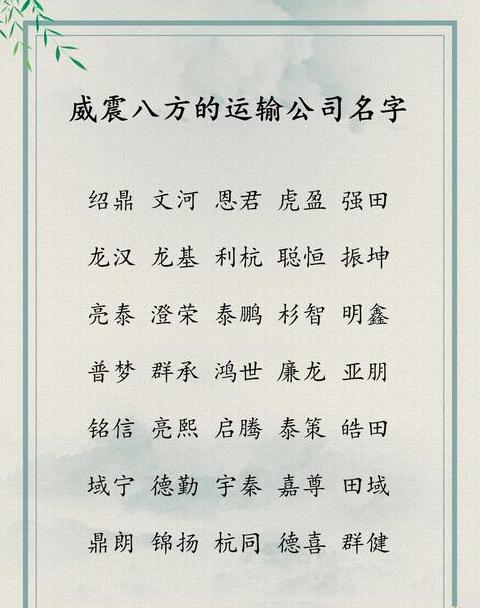 威震八方的运输公司名字
绍鼎 文河 恩君 虎盈 强田
龙汉 龙基 利杭 聪恒 振坤
亮泰 澄荣 泰鹏 杉智 明鑫
普梦 群承 鸿世 廉龙 亚朋
铭信 亮熙 启腾 泰策 皓田
域宁 德勤 宇秦 嘉尊 田域
鼎朗 锦扬 杭同 德喜 群健